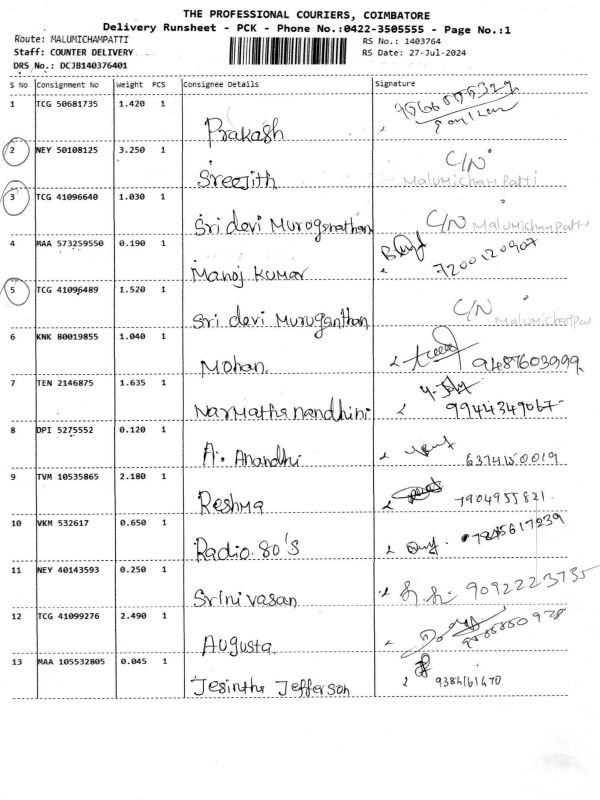 THE PROFESSIONAL COURIERS, COIMBATORE
Delivery Runsheet - PCK - Phone No.:0422-3505555 - Page No.:1
Route: MALUMICHAMPATTI
RS No.: 1403764
Staff: COUNTER DELIVERY
RS Date: 27-Jul-2024
DRS No.: DCJB140376401
S No Consignment No Weight PCS Consignee Details Signature
1 TCG 50681735 1.420 1
Prakash
2 NEY 50108125 3.250 1 C/N
Sreejith Malumichampatti
3 TCG 41096640 1.030 1 C/N Malumichampatti
Sri devi Muroganathan
4 MAA 573259550 0.190 1
Manoj Kumar 7200120907
5 TCG 41096489 1.520 1 C/N
Sri devi Muruganthan Malumichampat
6 KNK 80019855 1.040 1
Mohan. 9487603999
7 TEN 2146875 1.635 1
Narmatha nandhini 9944349067
8 DPI 5275552 0.120 1
A. Anandhi 6374150019
9 TVM 10535865 2.180 1
Reshma 7904955821
10 VKM 532617 0.650 1
Radio 80's 7845617239
11 NEY 40143593 0.250 1
Srinivasan 9092223735
12 TCG 41099276 2.490 1
Augusta
13 MAA 105532805 0.045 1
Jesintha Jefferson 9384161470